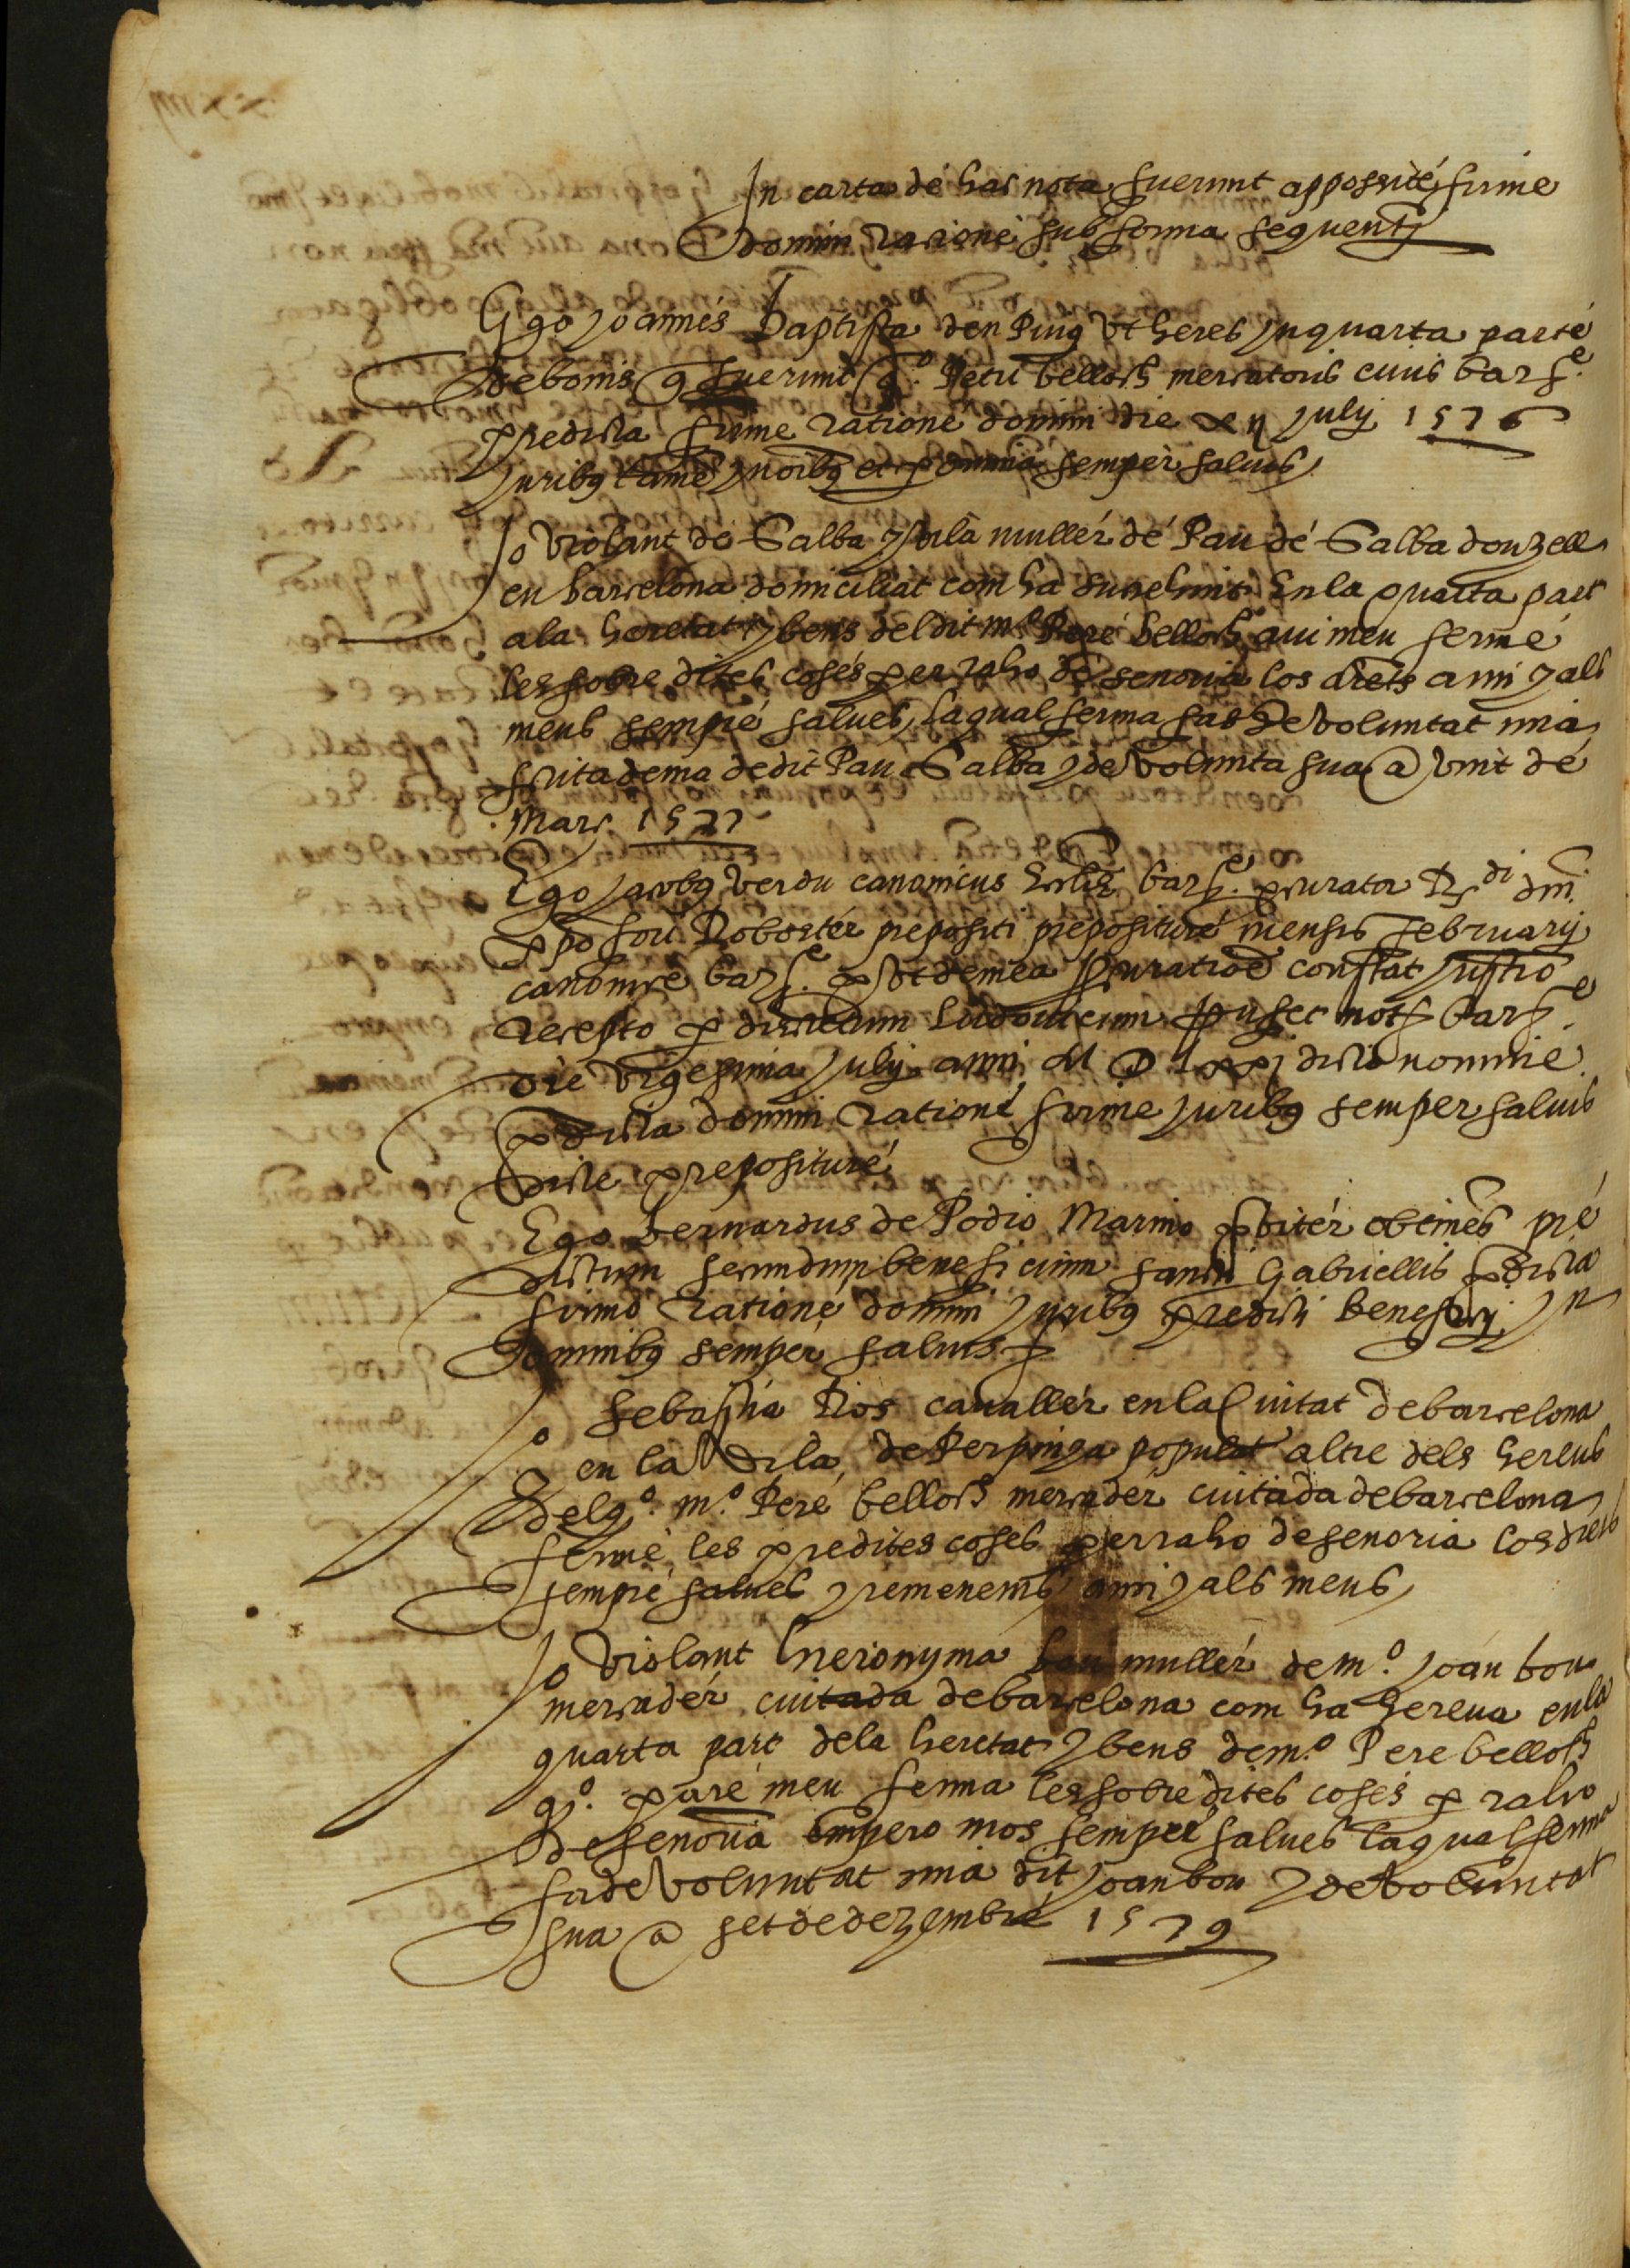 In carta de hac nota fuerunt apposite firme
domini racione sub forma sequenti
Ego Joannes Baptista den Puig ut heres in quarta parte
de bonis q fuerunt qº Petri belloch mercatoris civis barᵉ
predicta firme ratione domini die july 1576
juribq tame et omnia semper salvis
Jo Violant de Salba y mullér dé Pau dé Salba donzell
en barcelona domiciliat com ha en la quarta part
a la heretat y bens del dit mº Pere belloch avi meu ferme
les sobre dites coses per raho de senoria los drets a mi y als
meus sempre salves la qual ferma fas de voluntat mia
scrita de ma de dit Pau Salba y de volunta sua a vint de
Mars 1577
Ego Jacobq Verdu canonicus barᵉ pcurator Rᵈⁱ dni
Roboster prepositi prepositure mensis february
canonice barᵉ put de mea pcuratioe constat
recepto p discretum Ludovicum not barᵉ
die vigesima july anni M D Lxxj dicto nomine
pdicta domini ratione firme juribq semper salvis
dicte prepositure
Ego bernardus de Podio Marino pbiter obtines pre
dictum secundum beneficium sancti Gabriellis pdicta
firmo ratione domini juribq predicti beneficij in
omnibq semper salvis
Jo Sebastia Ros cavaller en la Ciutat de barcelona
y en la vila de Perpinya populat altre dels hereus
del qº mº Pere belloch mercader ciutada de barcelona
ferme les predites coses per raho de senoria los drets
sempre salves y romenents a mi y als meus
Jo Violant hieronyma bou mullér de mº Joan bou
mercader ciutada de barcelona com ha hereua en la
quarta part de la heretat y bens de mº Pere belloch
qº pare meu ferma les sobre dites coses p raho
de senoria empero mos semper salves la qual ferma
fas de voluntat mia dit Joan bou y de voluntat
sua a set de dezembre 1579